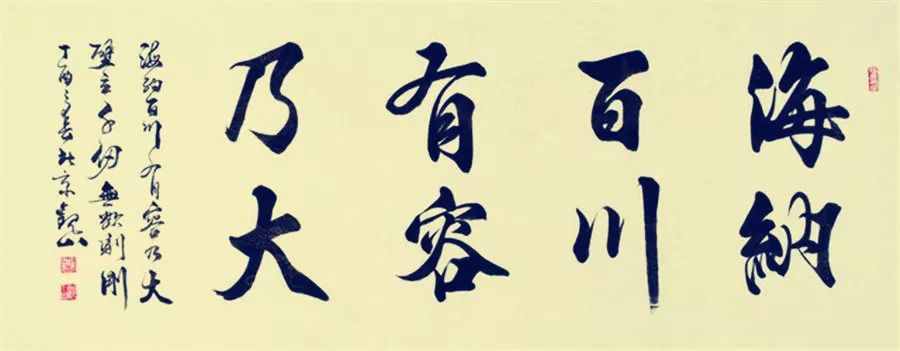 海納
百川
有容
乃大
海納百川有容乃大
壁立千仞無欲則剛
丁酉之春京觀山